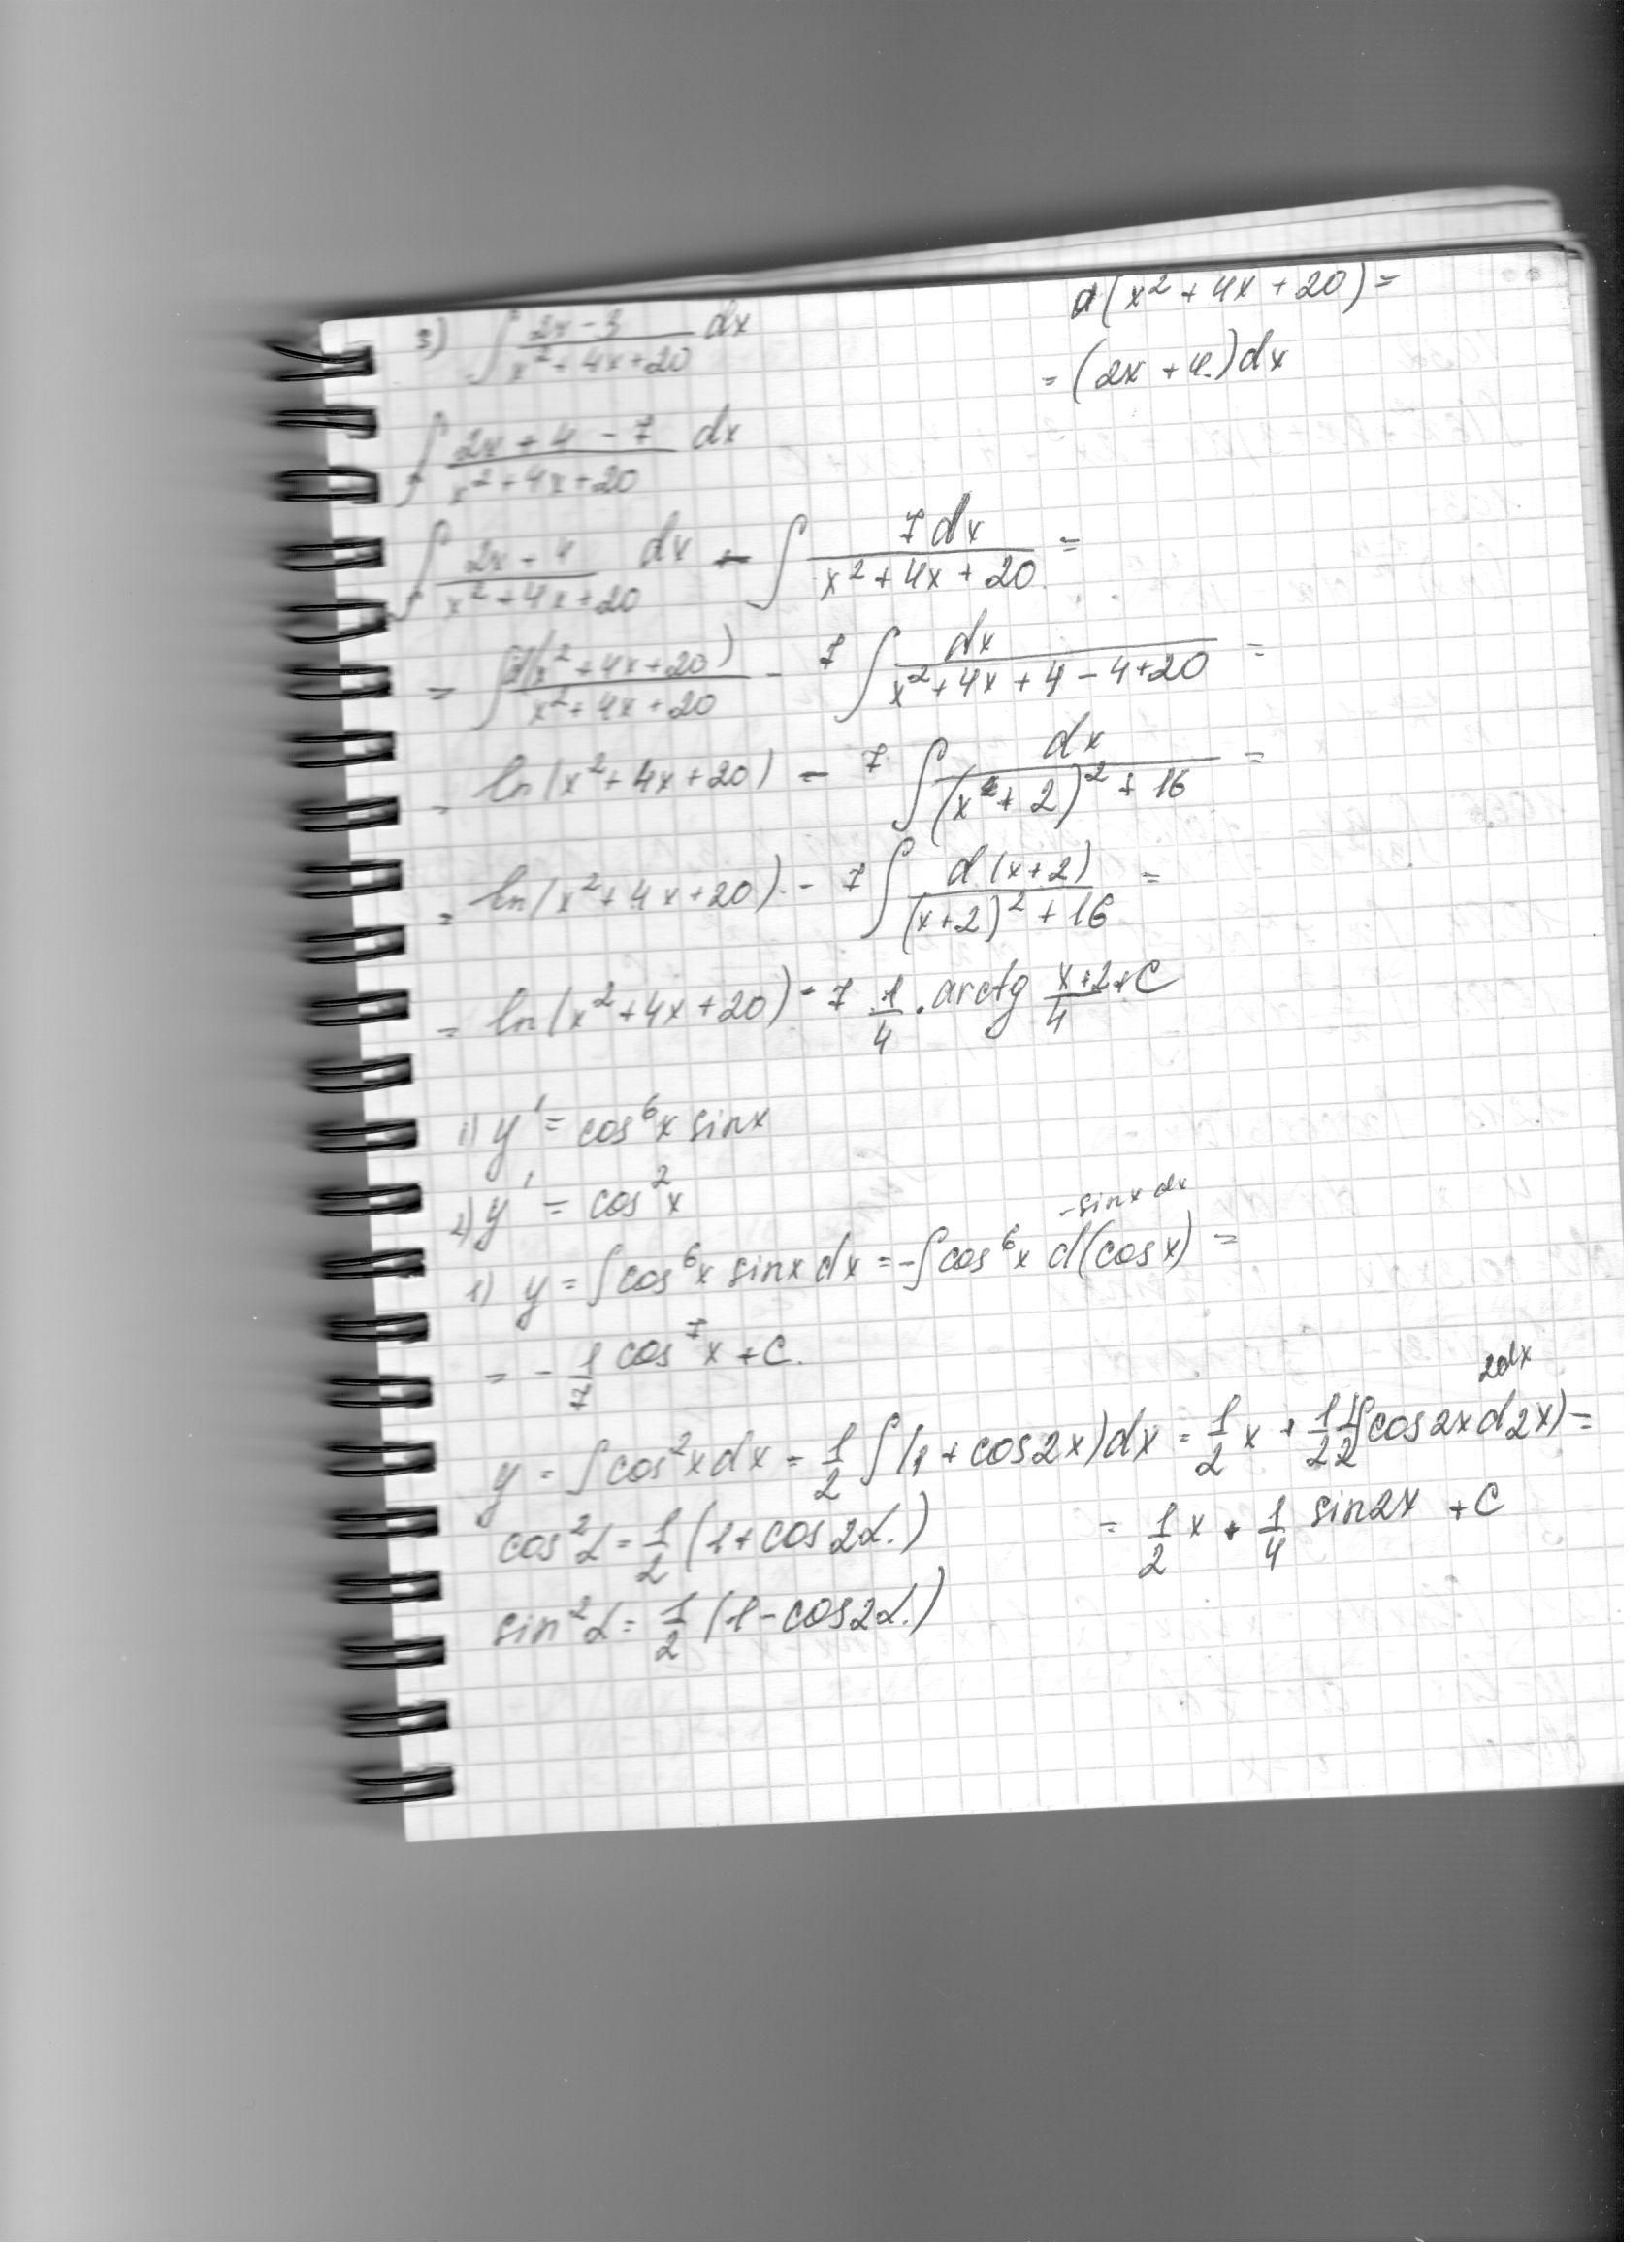 3) ∫ (2x - 3)/(x² + 4x + 20) dx
d(x² + 4x + 20) =
= (2x + 4)dx
∫ (2x + 4 - 7)/(x² + 4x + 20) dx
∫ (2x + 4)/(x² + 4x + 20) dx - ∫ 7dx/(x² + 4x + 20) =
= ∫ d(x² + 4x + 20)/(x² + 4x + 20) - 7 ∫ dx/(x² + 4x + 4 - 4 + 20) =
= ln(x² + 4x + 20) - 7 ∫ dx/((x + 2)² + 16) =
= ln(x² + 4x + 20) - 7 ∫ d(x+2)/((x+2)² + 16) =
= ln(x² + 4x + 20) - 7 1/4 · arctg (x+2)/4 + C
1) y' = cos⁶x sinx
2) y' = cos²x
-sinx dx
1) y = ∫cos⁶x sinx dx = -∫cos⁶x d(cosx) =
= - 1/7 cos⁷x + C.
2dx
y = ∫cos²x dx = 1/2 ∫(1 + cos2x)dx = 1/2 x + 1/2 1/2 ∫cos2x d2x) =
cos²α = 1/2 (1 + cos2α)
= 1/2 x + 1/4 sin2x + C
sin²α = 1/2 (1 - cos2α)